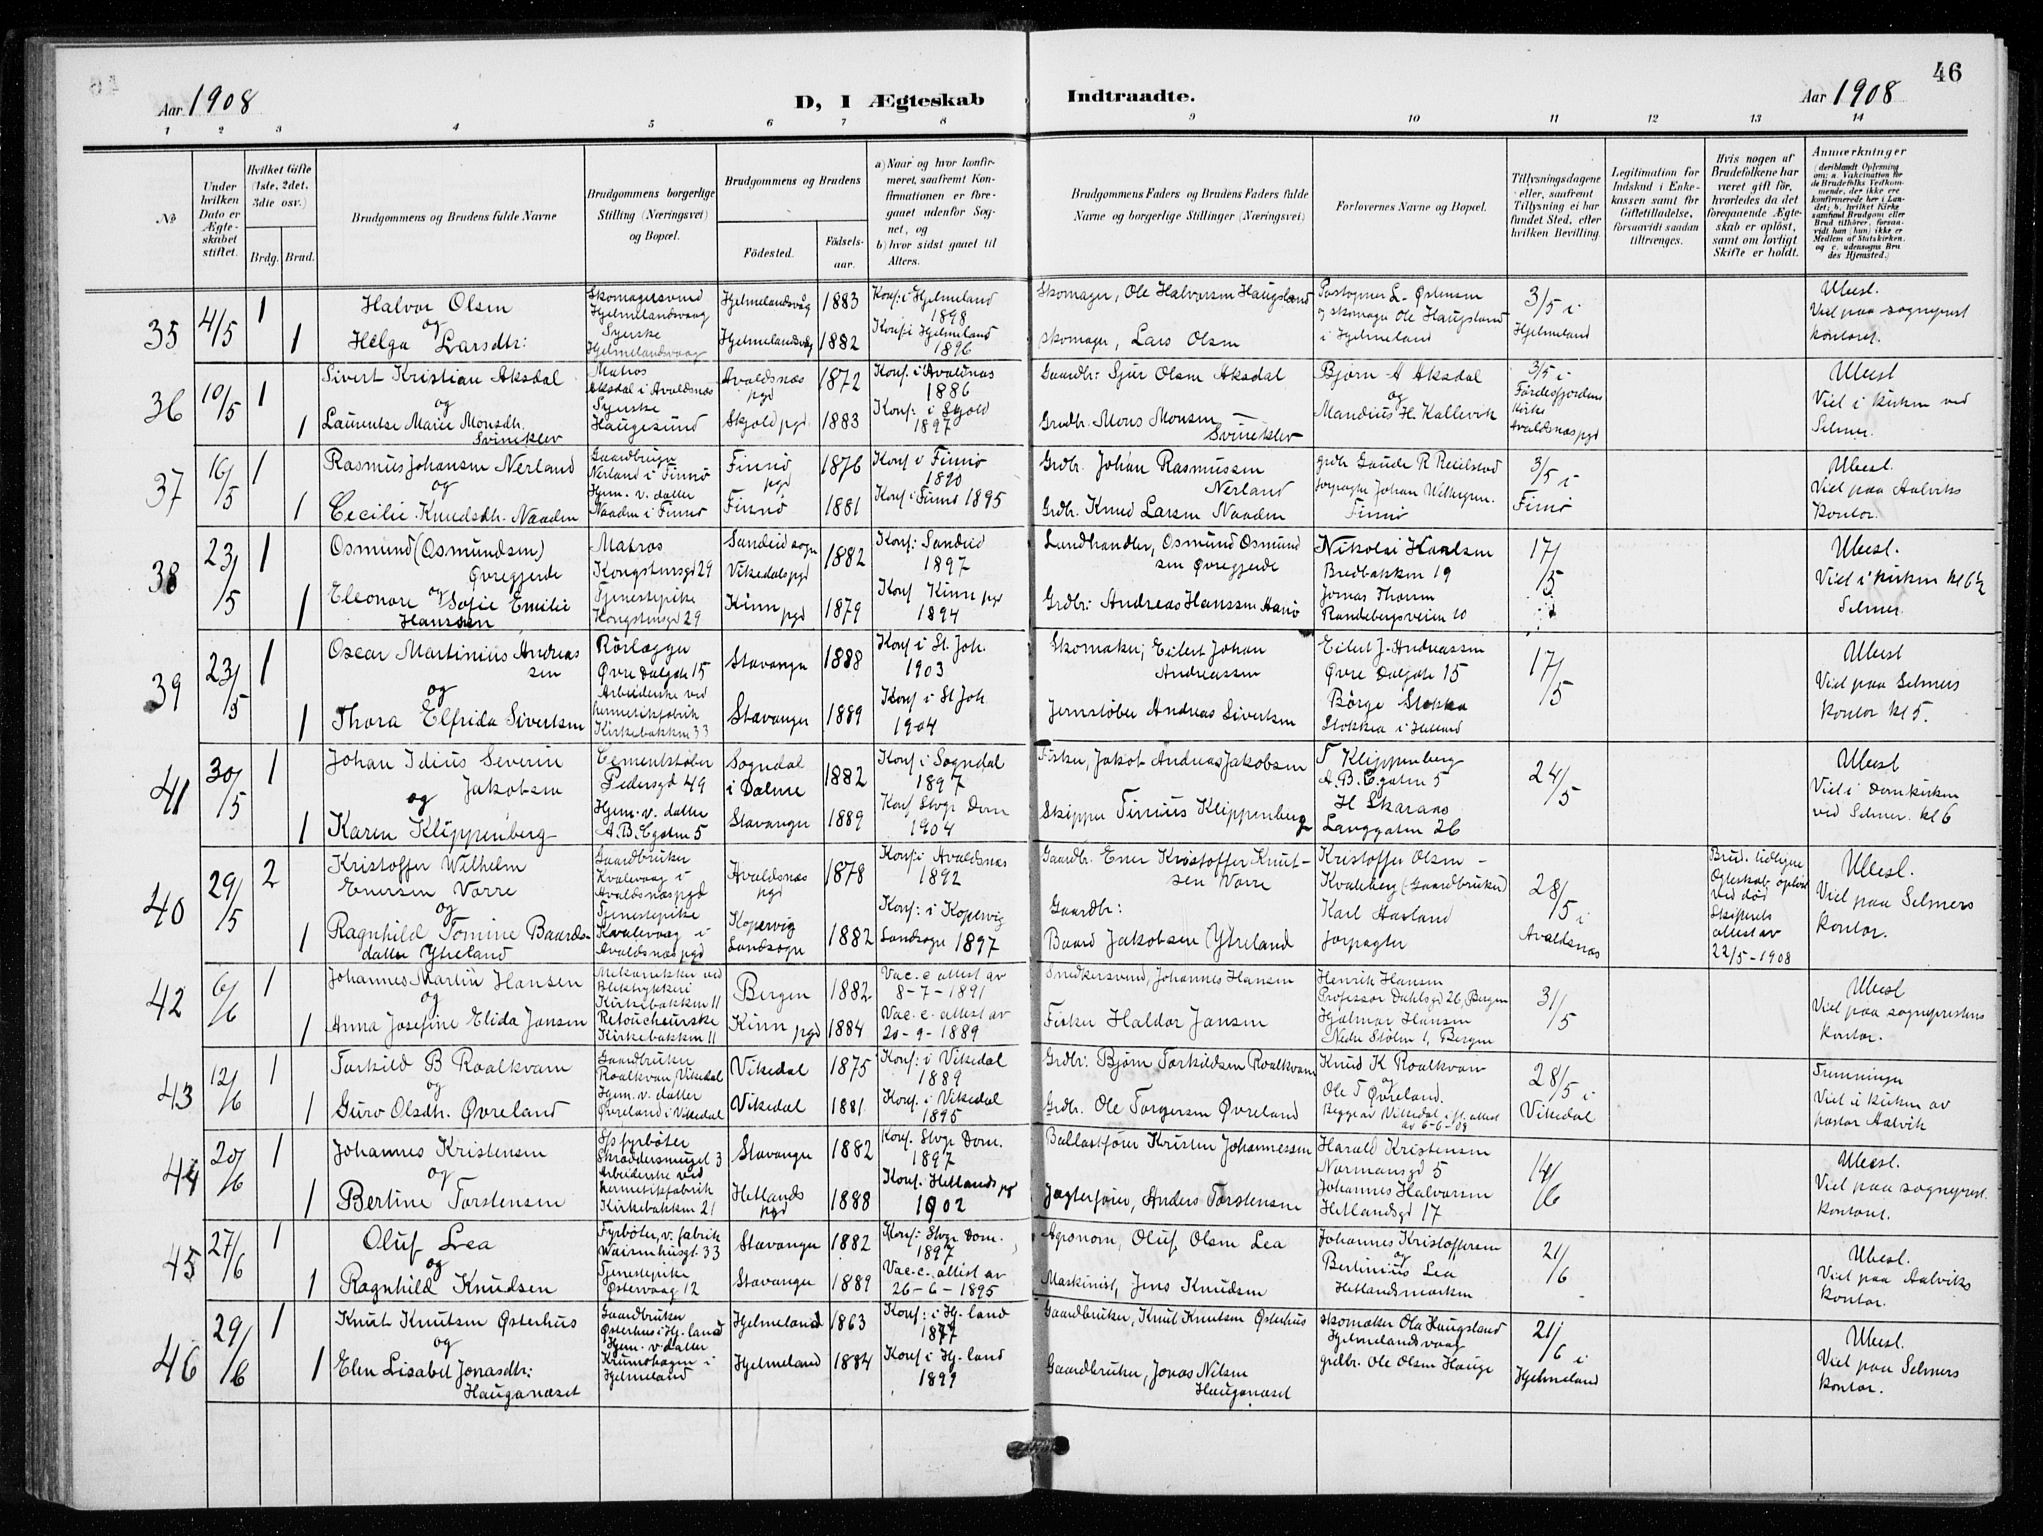 46
Aar 1908
D, I Ægteskab Indtraadte.
Aar 1908
1 2 3 4 5 6 7 8 9 10 11 12 13 14
No
Under hvilken Dato er Ægteskabet stiftet.
Hvilket Gifte (1ste, 2det, 3die osv.)
Brdg. Brud.
Brudgommens og Brudens fulde Navne
Brudgommens borgerlige Stilling (Næringsvei) og Bopæl.
Brudgommens og Brudens
Fødested. Fødselsaar.
a) Naar og hvor konfirmeret, saafremt Konfirmationen er foregaaet udenfor Sognet, og
b) hvor sidst gaaet til Alters.
Brudgommens Faders og Brudens Faders fulde Navne og borgerlige Stillinger (Næringsvei)
Forlovernes Navne og Bopæl.
Tillysningsdagene eller, saafremt Tillysning ei har fundet Sted, efter hvilken Bevilling.
Legitimation for Indskud i Enkekassen samt for Giftetilladelse, forsaavidt saadan tiltrænges.
Hvis nogen af Brudefolkene har været gift før, hvorledes da det foregaaende Ægteskab er opløst, samt om lovligt Skifte er holdt.
Anmærkninger
35 4/5 1 Halvor Olsen Skomagersvend Hjelmelandsvaag Hjelmelandsvåg 1883 Konf: i Hjelmeland 1898 Skomager, Ole Halvorsen Haugsland Postopner L. Østensen 3/5 i Ubesl.
og og skomager Ole Haugsland Viel paa sogneprest
1 Helga Larsdtr: Syerske Hjelmelandsvaag Hjelmelandsvåg 1882 Konf: i Hjelmeland 1896 skomager, Lars Olsen i Hjelmeland Hjelmeland kontoret.
36 10/5 1 Sivert Kristian Aksdal Matros Aksdal i Avaldsnæs Avaldsnæs pgd 1872 Konf. i Avaldsnas 1886 Gaardbr: Sjur Olsen Aksdal Bjørn A Aksdal 3/5 i Ubesl
og og Førdesfjordens kirke Viel i kirken ved
1 Laurentse Marie Monsdtr. Svineklev Syerske Haugesund Skjold pgd 1883 Konf: i Skjold 1897 Grdbr. Mons Monsen Svineklev Mandius H. Kallevik Avaldsnæs pgd Selmer.
37 16/5 1 Rasmus Johansen Nerland Gaardbruger Nerland i Finnø Finnø pgd 1876 Konf i Finnø 1890 Grdbr. Johan Rasmussen Nerland grdbr Gaude R Reilstad 3/5 i Ubesl.
og forpagter Johan Viel paa Aalviks
1 Cecilie Knudsdtr. Naaden Hjem. v. datter Naaden i Finnø Finnø 1881 Konf i Finnø 1895 Grdbr. Knud Larsen Naaden Finnø Finnø kontor.
38 23/5 1 Osmund (Osmundsen) Øvregjerde Matros Kongstensgd 29 Sandeid sogn Vikedals pgd 1882 Konf: Sandeid 1897 Landhandler, Osmund Osmundsen Øvregjerde Nikolai Karlsen Bredbakken 19 17/5 Ubesl.
og Viel i kirken kl 6½
1 Eleonore Sofie Emilie Hansen Tjenestepike Kongstensgd 29 Kinn pgd 1879 Konf Kinn pgd 1894 Grdbr: Andreas Hanssen Jonas Thorsen Randebergsveien 10 Selmer.
39 23/5 1 Oscar Martinius Andreassen Rørlægger Øvre Dalgate 15 Stavanger 1888 Konf i St. Joh. 1903 Skomaker, Eilert Johan Andreassen Eilert J. Andreassen Øvre Dalgate 15 17/5 Ubesl
og Viel paa Selmers
1 Thora Elfrida Sivertsen Arbeiderske ved hermetikfabrik Kirkebakken 33 Stavanger 1889 Konf i St Joh 1904 Jernstøber Andreas Sivertsen Børge Stokka Stokka i Hetland kontor kl 5.
41 30/5 1 Johan Idius Severin Jakobsen Cementstøber Pedersgd 49 Sogndal i Dalene 1882 Konf i Sogndal 1897 Fisker, Jakob Andreas Jakobsen T Klippenberg A.B.Cgaten 5 24/5 Ubesl
og Viel i Domkirken
1 Karen Klippenberg Hjem. v. datter A.B.Cgaten 5 Stavanger 1889 Konf Stvgr Dom 1904 Skipper Tinius Klippenberg H Skaraas Langgaten 26 ved Selmer. kl 6
40 29/5 2 Kristoffer Wilhelm Enersen Vorre Gaardbruker Kvalevaag i Avaldsnæs pgd Avaldsnæs pgd 1878 Konf i Avaldsnæs 1892 Gaardbr. Ener Kristoffer Knutsen Vorre Kristoffer Olsen Kvaleberg (Gaardbruker) 28/5 i Avaldsnæs Brud. tidligere Ægteskab opløst ved død Skifterets attest av 22/5-1908 Ubesl.
og Viel paa Selmers
1 Ragnhild Tomine Baardsdatter Ytreland Tjenestepike Kvalevaag i Avaldsnæs pgd Kopervig Landsogn 1882 Konf: i Kopervig Landsogn 1897 Gaardbr: Baard Jakobsen Ytreland Karl Hasland forpagter kontor.
42 6/6 1 Johannes Martin Hansen Mekaniker ved Bliktrykkeri Kirkebakken 11 Bergen 1882 Vac. c. attest av 8-7-1891 Snedkersvend, Johannes Hansen Henrik Hansen Professor Dahlsgd 26, Bergen 31/5 Ubesl
og Viel paa sogneprestens
1 Anna Josefine Elida Jansen Retoucheurske Kirkebakken 11 Kinn pgd 1884 Vac. c. attest av 20-9-1889 Fisker Haldor Jansen Hjalmar Hansen Nedre Stølen 1, Bergen kontor.
43 12/6 1 Torkild B Roalkvam Gaardbruker Roalkvam Vikedal Vikedal 1875 Konf: i Vikedal 1889 Grdbr: Bjørn Torkildsen Roalkvam Knud K Roalkvam 28/5 i Vikedal Tremenninger
og og Viel i kirken av
1 Guro Olsdtr. Øvreland Hjem. v. datter Øvreland i Vikedal Vikedal 1881 Konf. i Vikedal 1895 Grdbr. Ole Torgersen Øvreland Ole T Øvreland. Begge av Vikedal attest av 6-6-08 pastor Aalvik
44 20/6 1 Johannes Kristensen fyrbøter Skræddersmuget 3 Stavanger 1882 Konf. Stvgr Dom. 1897 Ballastfører Kristen Johannessen Harald Kristensen Normansgd 5 14/6 Ubesl.
og Viel paa sogneprest.
1 Bertine Torstensen Arbeiderske ved hermetikfabrik Kirkebakken 21 Hetlands pgd 1888 Konf. Hetlands pg 1902 Jagtefører, Anders Torstensen Johannes Halvorsen Hetlandsgd 17 kontoret.
45 27/6 1 Oluf Lea Fyrbøter, v. fabrik 33 Stavanger 1882 Konf: Stvgr Dom. 1897 Agronom, Oluf Olsen Lea Johannes Kristoffersen 21/6 Ubesl.
og og Viel paa Aalviks
1 Ragnhild Knudsen Tjenestepike Østervaag 12 Stavanger 1889 Vac. c. attest av 26-6-1895 Maskinist, Jens Knudsen Bertinius Lea Hetlandsmarken kontor.
46 29/6 1 Knut Knutsen Østerhus Gaardbruker Østerhus i Hj.land Hjelmeland 1863 Konf: i Hj-land 1877 Gaardbruker, Knut Knutsen Østerhus skomaker Ola Haugsland Hjelmelandsvaag 21/6 i Hjelmeland Ubesl.
og Viel paa Selmers
1 Elen Lisabet Jonasdtr: Hauganæset Hjem. v. datter i Hjelmeland Hjelmeland 1884 Konf i Hj-land 1899 Gaardbruker, Jonas Nilsen Hauganæset grdbr. Ole Olsen Hauge kontor.